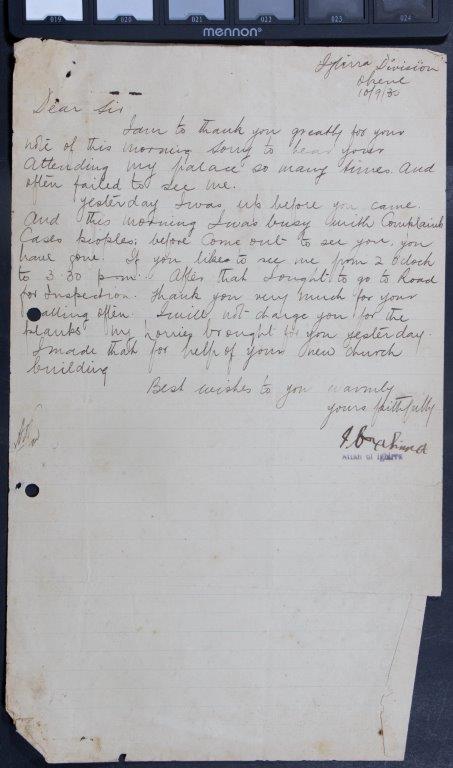 019 020 021 022 023 024
mennon
Igbirra Division
Okene
10/9/30
Dear Sir
I am to thank you greatly for your
note of this morning sorry to hear your
Attending my palace so many times. And
often failed to see me.
Yesterday I was up before you came.
And this morning I was busy with Complaints
Cases peoples, before Come out to see you, you
have gone. If you likes to see me from 2 oclock
to 3.30 p.m. After that I ought to go to Road
for Inspection. Thank you very much for your
calling often. I will not charge you for the
planks my lorries brought for you yesterday.
I made that for help of your new church
building
Best wishes to you warmly
yours faithfully
Attah of Igbirra